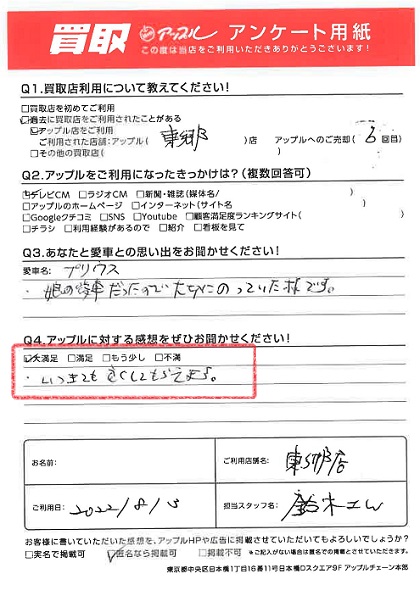 買取 アップル アンケート用紙
この度は当店をご利用いただきありがとうございます!
Q1.買取店利用について教えてください!
□買取を初めてご利用
☑過去に買取店をご利用されたことがある
☑アップル店をご利用
ご利用された店舗:アップル( 東郷 )店 アップルへのご売却( 6 回目)
□その他の買取店( )
Q2.アップルをご利用になったきっかけは?(複数回答可)
☑テレビCM □ラジオCM □新聞・雑誌(媒体名/ )
□アップルのホームページ □インターネット(サイト名 )
□Googleクチコミ □SNS □Youtube □顧客満足度ランキングサイト( )
□チラシ □利用経験があるので □紹介 □看板を見て
Q3.あなたと愛車との思い出をお聞かせください!
愛車名: プリウス
・娘の愛車だったので たいせつにのっていた様です。
Q4.アップルに対する感想をぜひお聞かせください!
☑大満足 □満足 □もう少し □不満
・いつもとても良くしてもらえます。
お名前:
ご利用店舗名: 東郷店
ご利用日: 2022/8/15
担当スタッフ名: 鈴木さん
お客様に書いていただいた感想を、アップルHPや広告に掲載させていただいてもよろしいでしょうか?
□実名で掲載可 ☑匿名なら掲載可 □掲載不可 ※ご記入がない場合は匿名での掲載とさせていただきます。
東京都中央区日本橋1丁目16番11号日本橋Dスクエア9F アップルチェーン本部